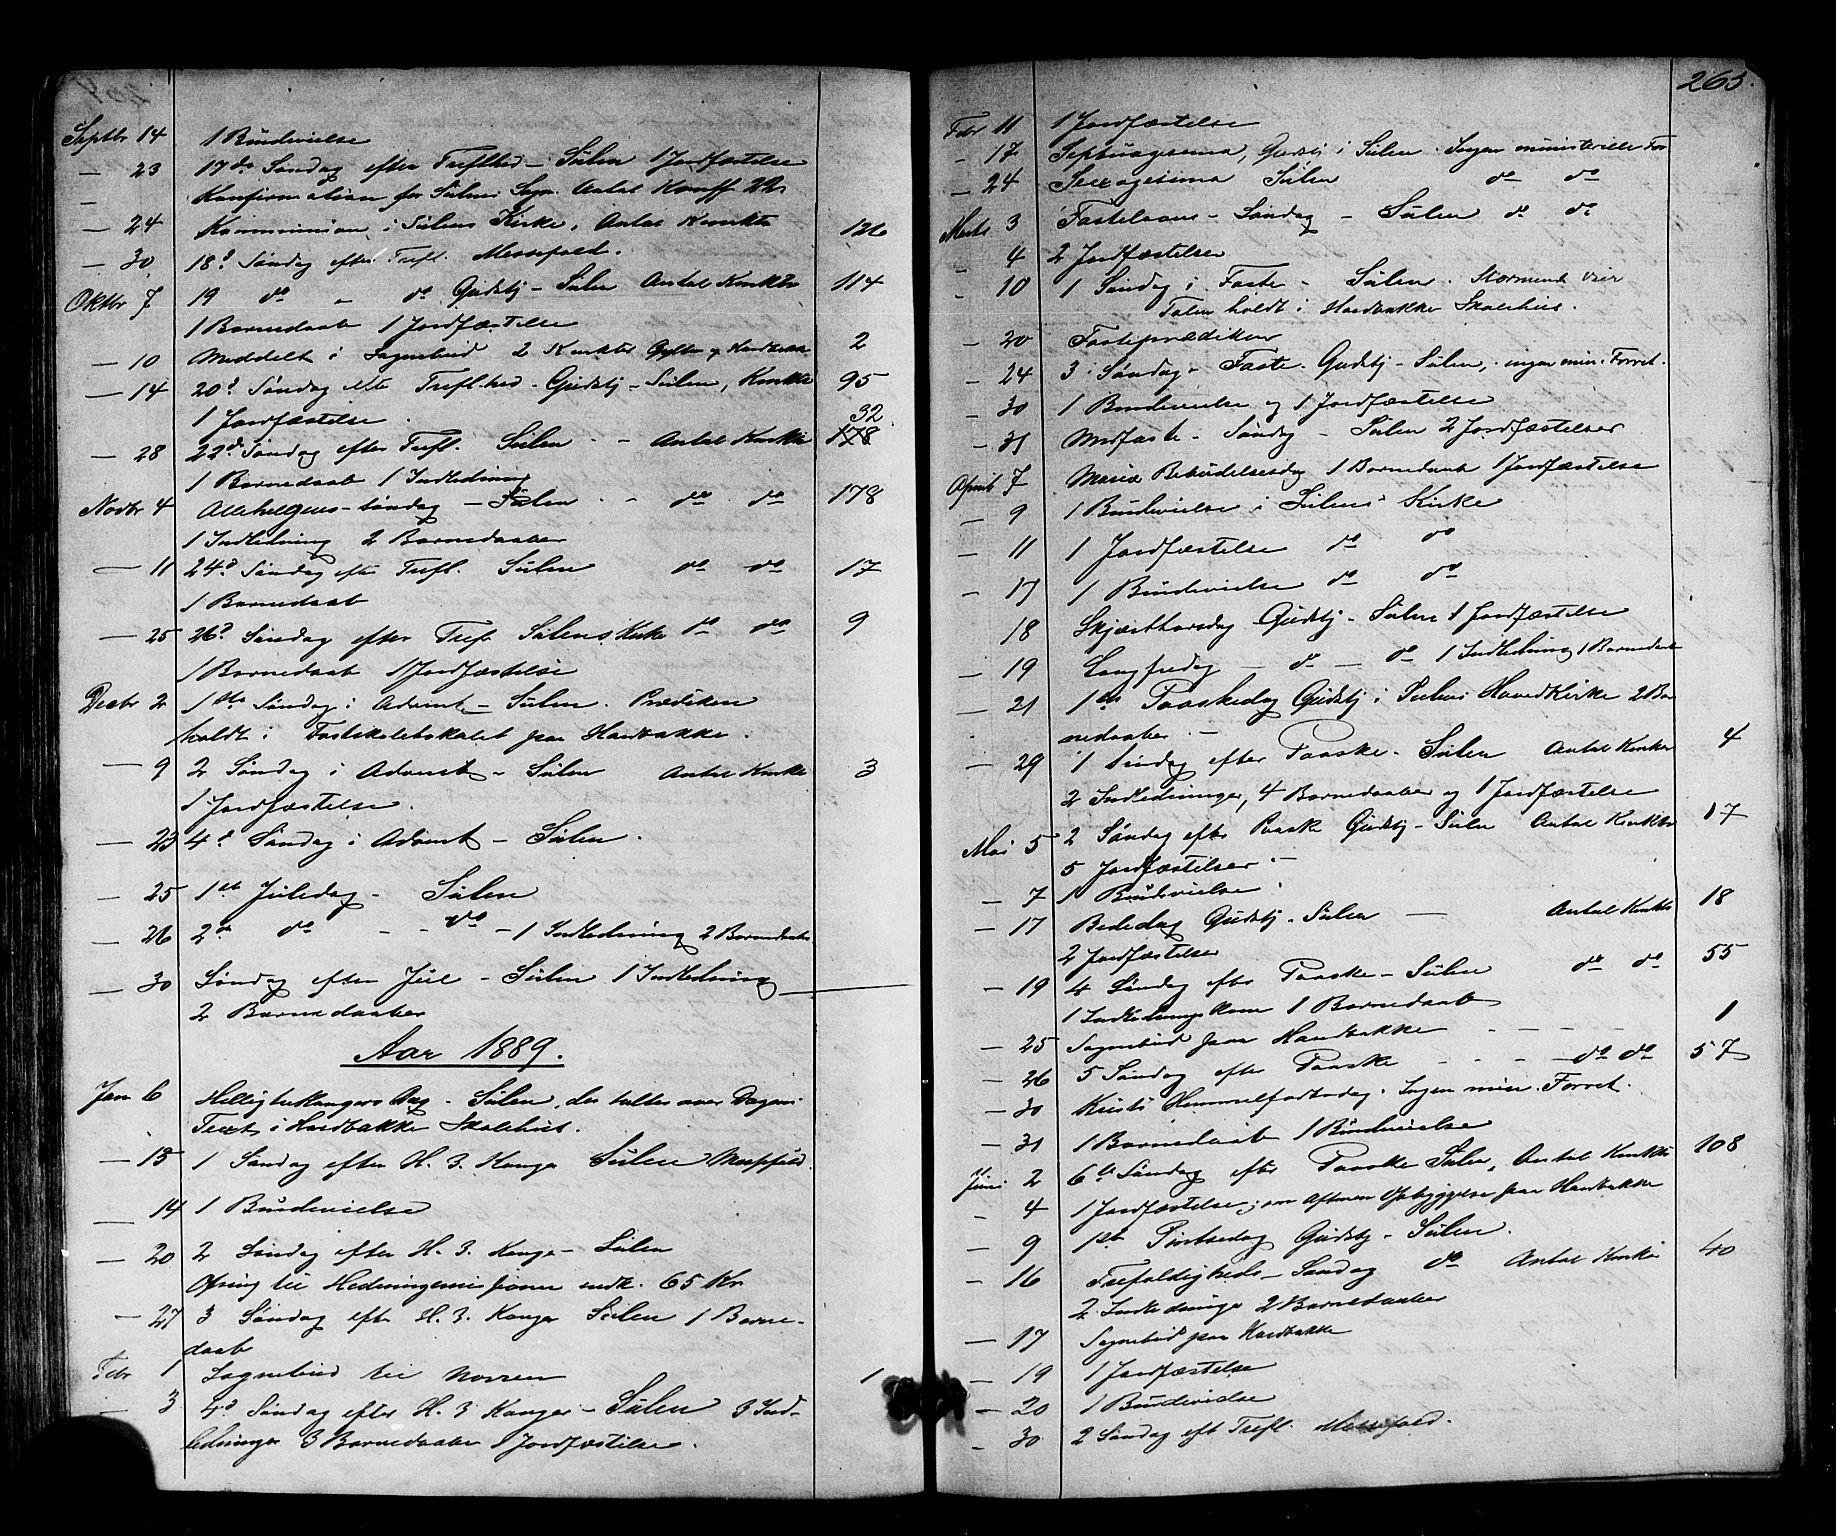 Septbr 14 1 Brudevielse
— 23 17de Søndag efter Treflhed – Sulen 1 Jordfæstelse
— Konfirmation for Sulens Sogn. Antal Konff 22
— 24 Kommunion i Sulens Kirke, Antal Konkter 126
— 30 18de Søndag efter Trefl. Messefald.
Oktbr 7 19 do – do Gudstj – Sulen Antal Konktr 114
1 Barnedaab 1 Jordfæstelse
— 10 Meddelt i Sognebud 2 Konkter Gylten og Hardbakke 2
— 14 20de Søndag efter Trefl.hed – Gudstj – Sulen, Konkter 95
1 Jordfæstelse. 32
— 28 22de Søndag efter Trefl. Sulen – Antal Konkter 178
1 Barnedaab 1 Indledning
Novbr 4 Allehelgens-søndag – Sulen – do do 178
1 Indledning 2 Barnedaaber
— 11 24de Søndag eft Trefl. Sulen do do 17
1 Barnedaab
— 25 26de Søndag efter Tref. Sulens Kirke do do 9
1 Barnedaab 1 Jordfæstelse
Decbr 2 1ste Søndag i Advent – Sulen. Prædiken
holdt i Fastskolelokalet paa Hardbakke.
— 9 2 Søndag i Advent – Sulen Antal Konkt 3
1 Jordfæstelse.
— 23 4de Søndag i Advent – Sulen.
— 25 1ste Juledag – Sulen
— 26 2de do – – do – 1 Indledning 2 Barnedaaber
— 30 Søndag efter Jul – Sulen 1 Indledning
2 Barnedaaber
Aar 1889.
Jan 6 Helligtrekongers Dag – Sulen, der taltes over Dagens
Text i Hardbakke Skolehus.
— 13 1 Søndag efter H. 3. Konger Sulen Messefald.
— 14 1 Brudevielse
— 20 2 Søndag efter H. 3. Konger – Sulen
Ofring til Hedningemissionen indk. 65 Kr
— 27 3 Søndag efter H. 3. Konger Sulen 1 Barne-
daab
Febr 1 Sognebud til 1
— 3 4de Søndag efter H. 3 Konger – Sulen 3 Ind-
ledninger 3 Barnedaaber 1 Jordfæstelse.
263.
Febr 11 1 Jordfæstelse
— 17 Septuagesima, Gudstj i Sulen. Ingen ministerielle For
— 24 Sexagesima Sulen do do
Marts 3 Fastelavns – Søndag – Sulen do do
— 4 2 Jordfæstelser
— 10 1 Søndag i Faste – Sulen. Stormende veir
Talen holdt i Hardbakke Skolehus.
— 20 Fasteprædiken
— 24 3 Søndag i Faste. Gudstj – Sulen, ingen min. Forret.
— 30 1 Brudevielse og 1 Jordfæstelse
— 31 Midfaste – Søndag – Sulen 2 Jordfæstelser
April 7 Mariæ Bebudelsesdag 1 Barnedaab 1 Jordfæstelse
— 9 1 Brudevielse i Sulens Kirke
— 11 1 Jordfæstelse do do
— 17 1 Brudevielse do do
18 Skjærthorsdag Gudstj – Sulen 1 Jordfæstelse
— 19 Langfredag – do – do 1 Indledning 1 Barnedaab
— 21 1ste Paaskedag Gudstj i Sulens Hovedkirke 2 Bar
nedaaber. –
— 29 1 Søndag efter Paaske – Sulen Antal Konkter 4
2 Indledninger, 4 Barnedaaber og 1 Jordfæstelse
Mai 5 2 Søndag eftr Paaske Gudstj – Sulen Antal Konktr 17
5 Jordfæstelser –
— 7 1 Brudevielse
— 17 Bededag Gudstj – Sulen — Antal Konktr 18
2 Jordfæstelser
— 19 4 Søndag eftr Paaske – Sulen do do 55
1 Indledningskone 1 Barnedaab
— 25 Sognebud paa Hardbakke – – – – – 1
— 26 5 Søndag efter Paaske – – – – do do 57
— 30 Kristi Himmelfartsdag. Ingen min. Forret.
— 31 1 Barnedaab 1 Brudevielse
Juni 2 6te Søndag eftr Paaske Sulen, Antal Konktr 108
— 4 1 Jordfæstelse; om Aftenen Opbyggelse paa Hardbakke
— 9 1ste Pintsedag Gudstj – Sulen.
— 16 Trefoldigheds – Søndag do Antal Konkr 40
2 Indledninger 2 Barnedaaber
— 17 Sognebud paa Hardbakke
— 19 1 Jordfæstelse
— 20 1 Brudevielse
— 30 2 Søndag eft Trefl. Messefald.